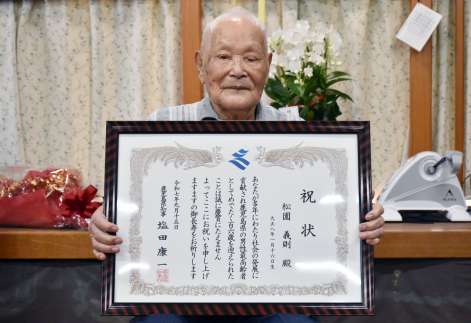 祝状
松圃 義則 殿
大正八年一月十六日生
あなたが多年にわたり社会の発展に
貢献され鹿児島県の男性最高齢者
としてめでたく百六歳を迎えられた
ことは誠に慶賀にたえません
よってここにお祝いを申し上げ
ますますの御長寿をお祈りします
令和七年九月十五日
鹿児島県知事 塩田 康一